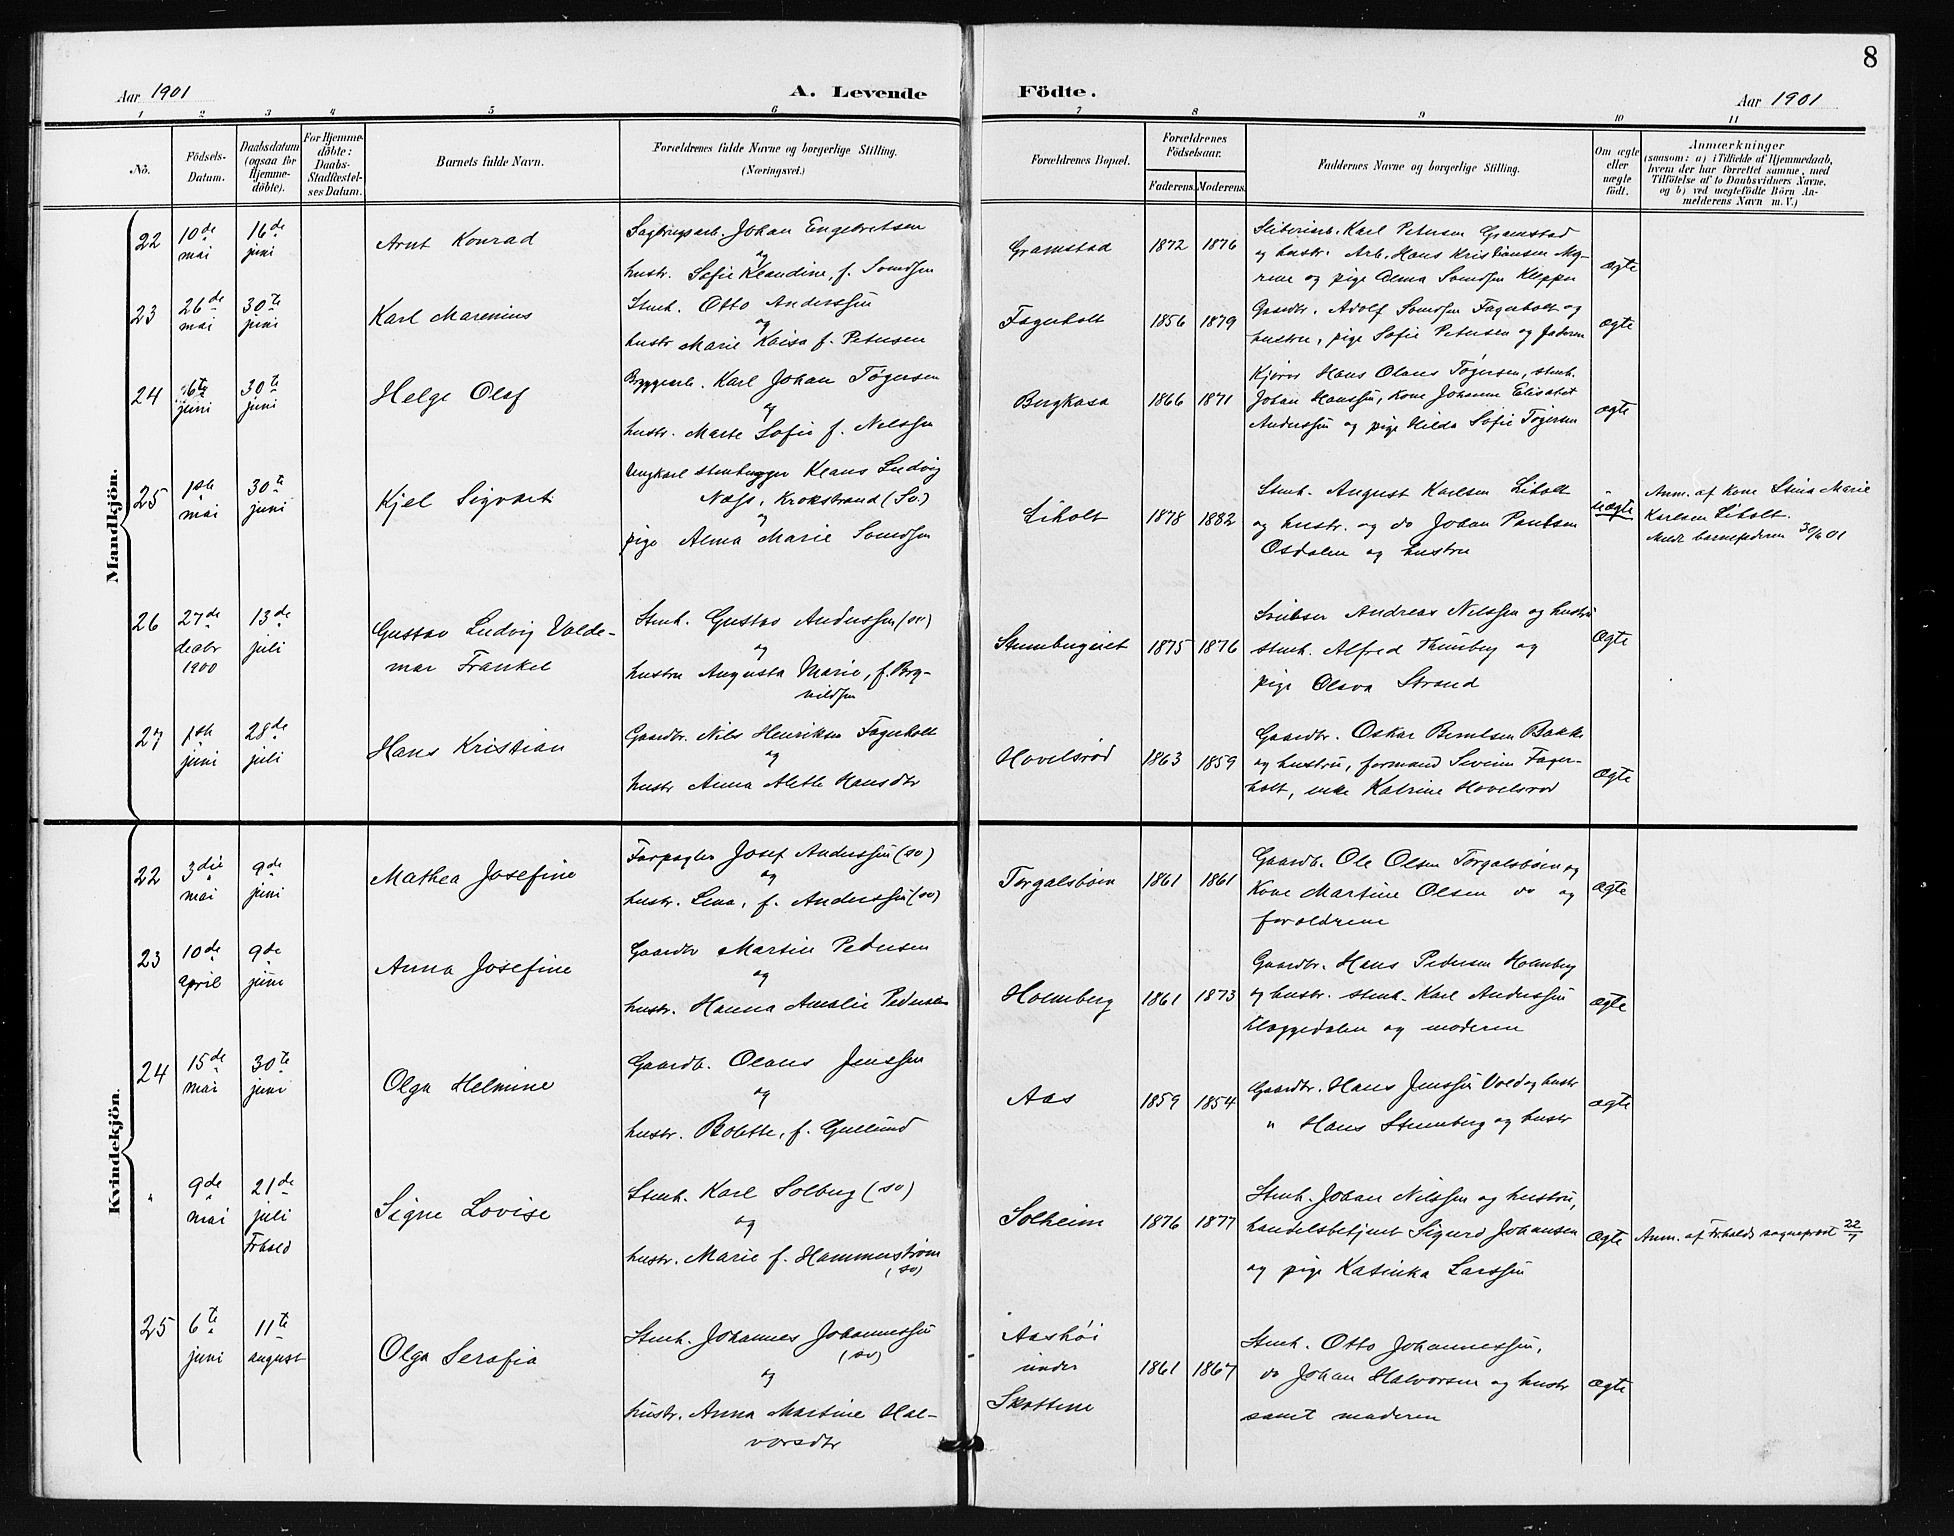 8
Aar 1901
A. Levende
Födte.
Aar 1901
1 2 3 4 5 6 7 8 9 10 11
No.
Födsels-
Datum.
Daabsdatum
(ogsaa for
Hjemme-
döbte).
For Hjemme-
döbte:
Daabs-
Stadfæstel-
ses Datum.
Barnets fulde Navn.
Forældrenes fulde Navne og borgerlige Stilling.
(Næringsvei.)
Forældrenes Bopæl.
Forældrenes
Födselsaar.
Faderens. Moderens.
Faddernes Navne og borgerlige Stilling.
Om ægte
eller
uægte
födt.
Anmærkninger
(saasom: a) i Tilfælde af Hjemmedaab,
hvem der har forrettet samme, med
Tilföielse af to Daabsvidners Navne,
og b) ved uægtefödte Börn An-
melderens Navn m. V.)
Mandkjön.
22
10de
mai
16de
juni
Arnt Konrad
Sagbrugsarb. Johan Engebretsen
og
hustr. Sofie Klaudine, f. Svendsen
Gramstad
1872 1876
Sliberiarb. Karl Petersen Gramstad
og hustr. Arb. Hans Kristiansen My-
rene og pige Alma Svendsen Kleppe
ægte
23
26de
mai
30te
juni
Karl Marenius
Stenh. Otto Anderssen
og
hustr Marie Kaisa f. Petersen
Fagerholt
1856 1879
Gaardbr. Adolf Svendsen Fagerholt og
hustru, pige Sofie Petersen og faderen
ægte
24
6te
juni
30te
juni
Helge Olaf
Bryggearb. Karl Johan Tøgersen
og
hustr. Marte Sofie f. Nilssen
Bergkasa
1866 1871
Kjører Hans Olaus Tøgersen, stenh.
Johan Hanssen, Kone Johanne Elisabet
Anderssen og pige Hilda Sofie Tøgersen
ægte
25
1ste
mai
30te
juni
Kjel Sigvart
Ungkarl stenhugger Klaus Ludvig
Næss, Krokstrand (Sv.)
og
pige Alma Marie Svendsen
Liholt
1878 1882
Stenh. August Karlsen Liholt
og hustr. og do Johan Paulsen
Osdalen og hustru
uægte
Anm. af Kone Stina Marie
Karlsen Liholt.
Medt barnefaderen 30/6 01
26
27de
decbr
1900
13de
juli
Gustav Ludvig Valde-
mar Frankel
Stenh. Gustav Anderssen (sv)
og
hustru Augusta Marie, f. Bry-
nildsen
Stenbergviet
1875 1876
Snibser Andreas Nilssen og hustru
stenh. Alfred Thunberg og
pige Olava Strand
ægte
27
1ste
juni
28de
juli
Hans Kristian
Gaardbr. Nils Henriksen Fagerholt
og
hustr Anna Alette Hansdtr
Hovelsrød
1863 1859
Gaardbr. Oskar Berntsen Bakke
og hustru, formand Sivein Fager-
holt, enke Katrine Hovelsrød
ægte
Kvindekjön.
22
3die
mai
9de
juni
Mathea Josefine
Forpagter Josef Anderssen (sv)
og
hustr. Lena, f. Anderssen (sv)
Torgalsbøen
1861 1861
Gaardb. Ole Olsen Torgalsbøen og
Kone Martine Olsen do og
forældrene
ægte
23
10de
april
9de
juni
Anna Josefine
Gaardbr Martin Pedersen
og
hustr. Hanna Amalie Pedersen
Holmberg
1861 1873
Gaardbr. Hans Pedersen Holmberg
og hustr. stenh. Karl Anderssen
Kloppedalen og moderen
ægte
24
15de
mai
30te
juni
Olga Helmine
Gaardb. Olaus Jenssen
og
hustr. Bolette, f. Gullund
Aas
1859 1854
Gaardbr. Hans Jenssen Vold og hustr
" Hans Stenberg og hustr
ægte
"
9de
mai
21de
juli
Frhald
Signe Lovise
Stenh. Karl Solberg (sv)
og
hustr. Marie f. Hammerstrøm
(sv)
Solheim
1876 1877
Stenh. Johan Nilssen og hustru,
handelsbetjent Sigurd Johansen
og pige Katinka Larssen
ægte
Anm. af Frhalds sogneprest 22/7
25
6te
juni
11te
august
Olga Serafia
Stenh. Johannes Johannessen
(sv)
og
hustr. Anna Martine Hal-
vorsdtr
Aashøi
under
Skottene
1861 1867
Stenh. Otto Johannessen,
do Johan Halvorsen og hustr
samt moderen
ægte